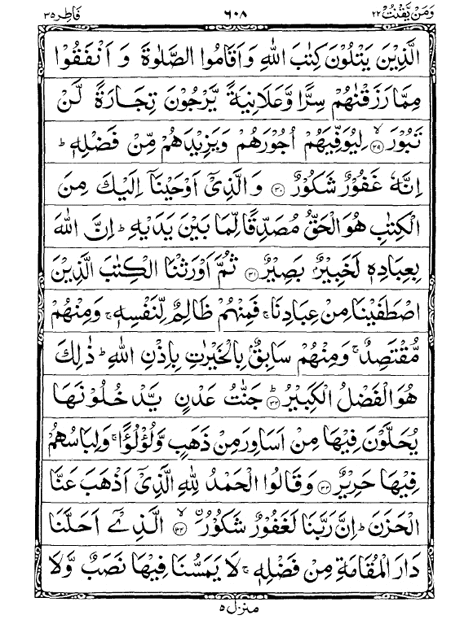 وَمَنْ يَّقْنُتْ ٢٢ ٦٠٨ فَاطِر ٣٥
الَّذِيْنَ يَتْلُوْنَ كِتٰبَ اللّٰهِ وَاَقَامُوا الصَّلٰوةَ وَاَنْفَقُوْا
مِمَّا رَزَقْنٰهُمْ سِرًّا وَّعَلَانِيَةً يَّرْجُوْنَ تِجَارَةً لَّنْ
تَبُوْرَ ۙ‏﴿٢٩﴾ لِيُوَفِّيَهُمْ اُجُوْرَهُمْ وَيَزِيْدَهُمْ مِّنْ فَضْلِهٖ ؕ
اِنَّهٗ غَفُوْرٌ شَكُوْرٌ ﴿٣٠﴾ وَالَّذِيْٓ اَوْحَيْنَآ اِلَيْكَ مِنَ
الْكِتٰبِ هُوَ الْحَقُّ مُصَدِّقًا لِّمَا بَيْنَ يَدَيْهِ ؕ اِنَّ اللّٰهَ
بِعِبَادِهٖ لَخَبِيْرٌۢ بَصِيْرٌ ﴿٣١﴾ ثُمَّ اَوْرَثْنَا الْكِتٰبَ الَّذِيْنَ
اصْطَفَيْنَا مِنْ عِبَادِنَا ۚ فَمِنْهُمْ ظَالِمٌ لِّنَفْسِهٖ ۚ وَمِنْهُمْ
مُّقْتَصِدٌ ۚ وَمِنْهُمْ سَابِقٌۢ بِالْخَيْرٰتِ بِاِذْنِ اللّٰهِ ؕ ذٰلِكَ
هُوَ الْفَضْلُ الْكَبِيْرُ ؕ ﴿٣٢﴾ جَنّٰتُ عَدْنٍ يَّدْخُلُوْنَهَا
يُحَلَّوْنَ فِيْهَا مِنْ اَسَاوِرَ مِنْ ذَهَبٍ وَّلُؤْلُؤًا ۚ وَلِبَاسُهُمْ
فِيْهَا حَرِيْرٌ ﴿٣٣﴾ وَقَالُوا الْحَمْدُ لِلّٰهِ الَّذِيْٓ اَذْهَبَ عَنَّا
الْحَزَنَ ؕ اِنَّ رَبَّنَا لَغَفُوْرٌ شَكُوْرُۨ ۙ ﴿٣٤﴾ الَّذِيْٓ اَحَلَّنَا
دَارَ الْمُقَامَةِ مِنْ فَضْلِهٖ ۚ لَا يَمَسُّنَا فِيْهَا نَصَبٌ وَّلَا
منزل ٥